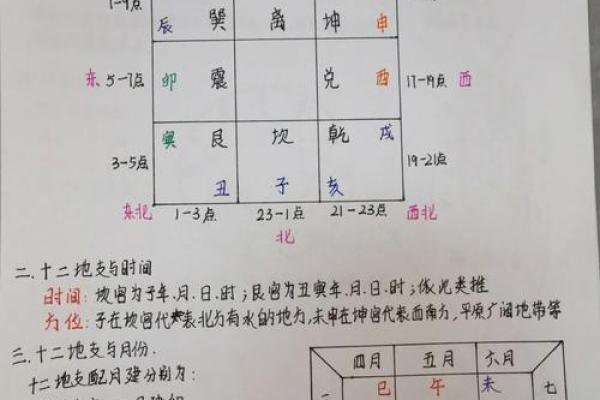 1-9点
辰 巽 离 坤 申
东 5-7点 卯 震 兑 酉 17-19点 西
寅 艮 坎 乾 戌
3-5点 19-21点
丑 子 亥
东北 1-3点 23-1点 21-23点 西北
北
二.十二地支与时间
时间:坎宫为子年、月、日、时;艮宫为丑寅年、月、日、时;依此类推
方位:子在坎宫代表北方有水的地方,未申在坤宫代表西南方,平原广阔地带等
三.十二地支与月份.
十二地支配月建分别为:
四月 五月 六月
巳 午 未 七